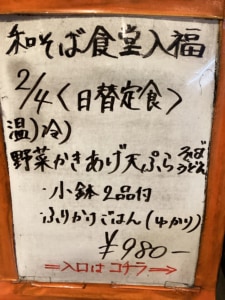 和そば食堂入福
2/4<日替定食>
温)冷)
野菜かきあげ天ぷら そば うどん
・小鉢2品付
・ふりかけごはん(ゆかり)
¥980-
⇒入口は コチラ→